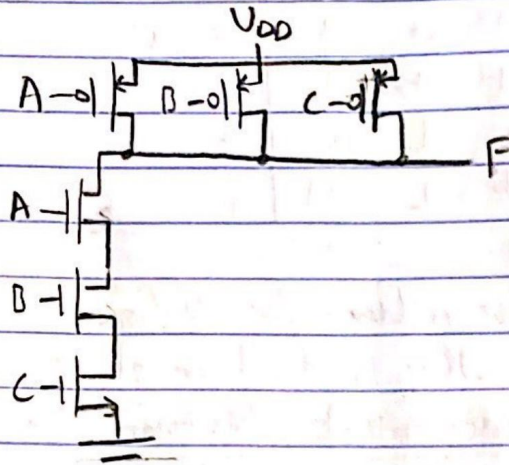 VDD
A B C
F
A
B
C